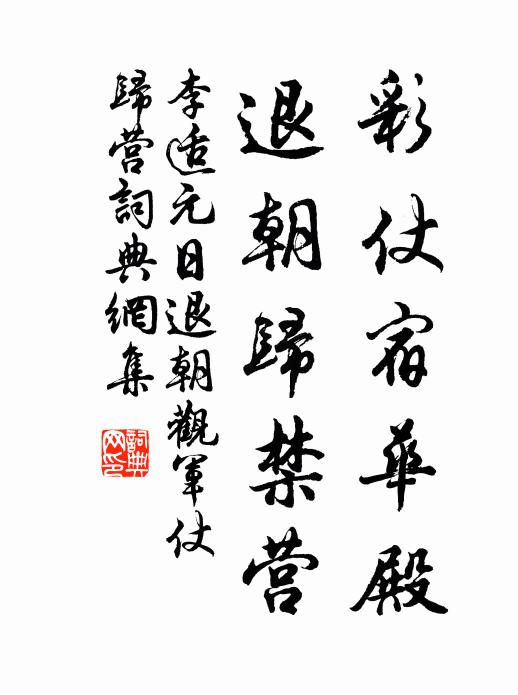 彩仗宿華殿
退朝歸禁营
李适元日退朝觀軍仗
歸营詞典網集
詞典
网印